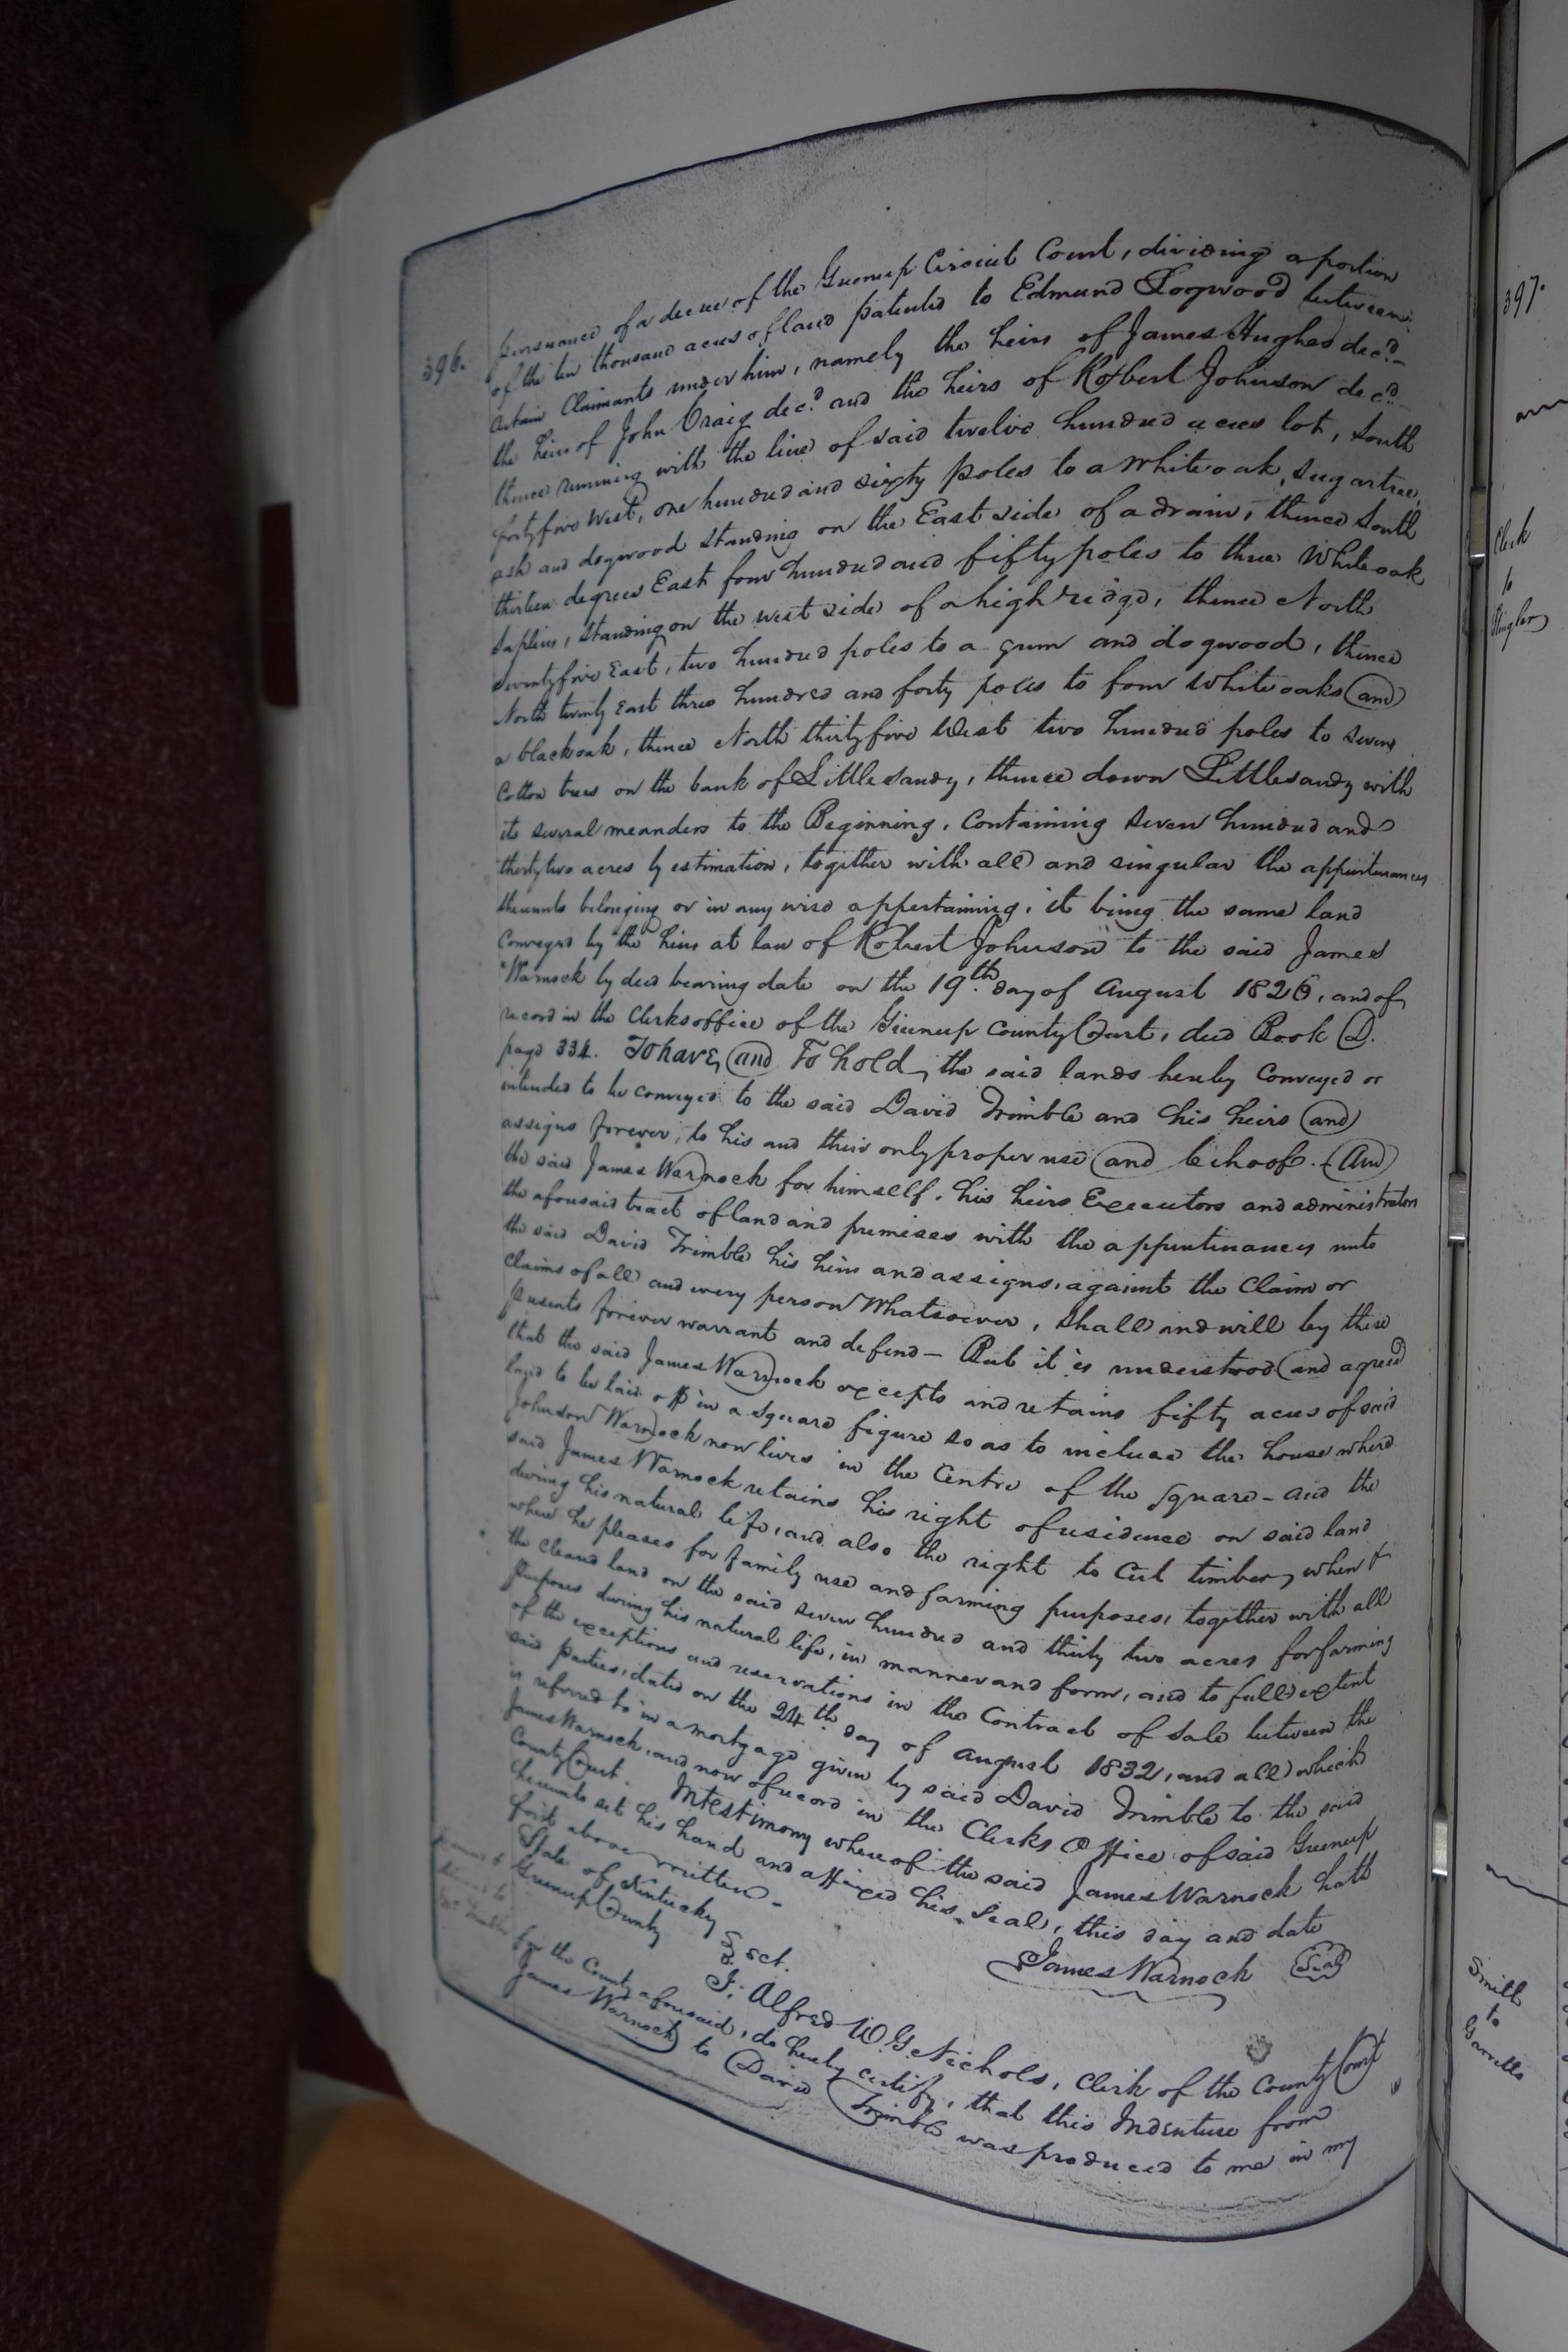 396.
pursuance of a decree of the Greenup Circuit Court, dividing a portion
of the ten thousand acres of land patented to Edmund Logwood between
certain Claimants under him, namely the heirs of James Hughes dec.d
the heirs of John Craig dec.d and the heirs of Robert Johnson dec.d
thence running with the line of said twelve hundred acres lot, South
forty five West, one hundred and sixty poles to a white oak, sugartree,
ash and dogwood standing on the East side of a drain, thence South
thirteen degrees East four hundred and fifty poles to three White oak
saplins, standing on the west side of a high ridge, thence North
seventy five East, two hundred poles to a gum and dogwood, thence
North twenty East three hundred and forty poles to four White oaks and
a black oak, thence North thirty five West two hundred poles to seven
Cotton trees on the bank of Little sandy, thence down Little sandy with
its several meanders to the Beginning, Containing seven hundred and
thirty two acres by estimation, together with all and singular the appurtenances
thereunto belonging or in any wise appertaining, it being the same land
Conveyed by the heirs at law of Robert Johnson to the said James
Warnock by deed bearing date on the 19th day of August 1826, and of
record in the Clerks office of the Greenup County Court, deed Book D.
page 334. To have and To hold, the said lands hereby Conveyed or
intended to be conveyed to the said David Trimble and his heirs and
assigns forever, to his and their only proper use and behoof. And
the said James Warnock for himself, his heirs Executors and administrators
the aforesaid tract of land and premises with the appurtinances unto
the said David Trimble his heirs and assigns, against the Claim or
Claims of all and every person Whatsoever, shall and will by these
presents forever warrant and defend - But it is understood and agreed
that the said James Warnock excepts and retains fifty acres of said
land to be laid off in a square figure so as to include the house where
Johnson Warnock now lives in the Centre of the square - and the
said James Warnock retains his right of residence on said land
during his natural life, and also the right to Cut timber, when &
where he pleases for family use and farming purposes, together with all
the cleared land on the said seven hundred and thirty two acres for farming
purposes during his natural life, in manner and form, and to full extent
of the exceptions and reservations in the Contract of sale between the
said parties, dated on the 24th day of August 1832, and all which
is referred to in a mortgage given by said David Trimble to the said
James Warnock, and now of record in the Clerks Office of said Greenup
County Court. In testimony whereof the said James Warnock hath
hereunto set his hand and affixed his Seal, this day and date
first above written -
James Warnock Seal
State of Kentucky
Greenup County } sct.
I, Alfred W. G. Nichols, Clerk of the County Court
for the County aforesaid, do hereby certify, that this Indenture from
James Warnock to David Trimble was produced to me in my
397.
Clerk
to
Smith
to